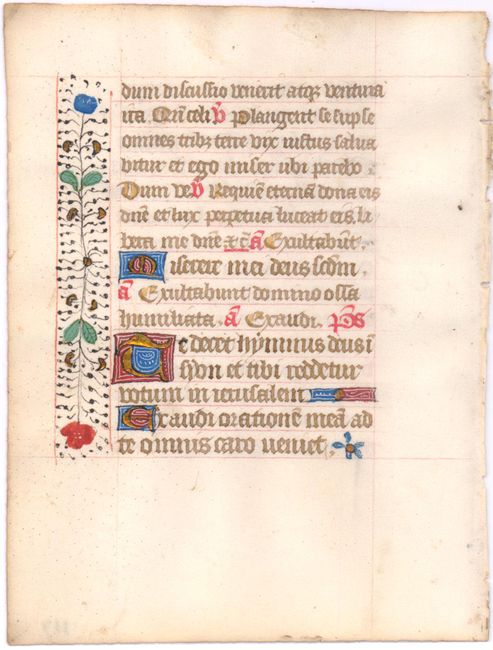 dum discussio venerit atq; ventura
ira. Qn̄ celi v̄ Plangent se sup se
omnes trib; terre vix iustus salua
bitur et ego miser ubi parebo.
Dum ve v̄ Requiē eternā dona eis
dn̄e et lux perpetua luceat eis. li
bera me dn̄e ā Exultabūt.
Miserere mei deus scdm̄.
ā Exultabunt domino ossa
humiliata. ā Exaudi. pōs
Te decet hymnus deus ī
syon et tibi reddetur
votum in ierusalem
Exaudi orationē meā ad
te omnis caro veniet.